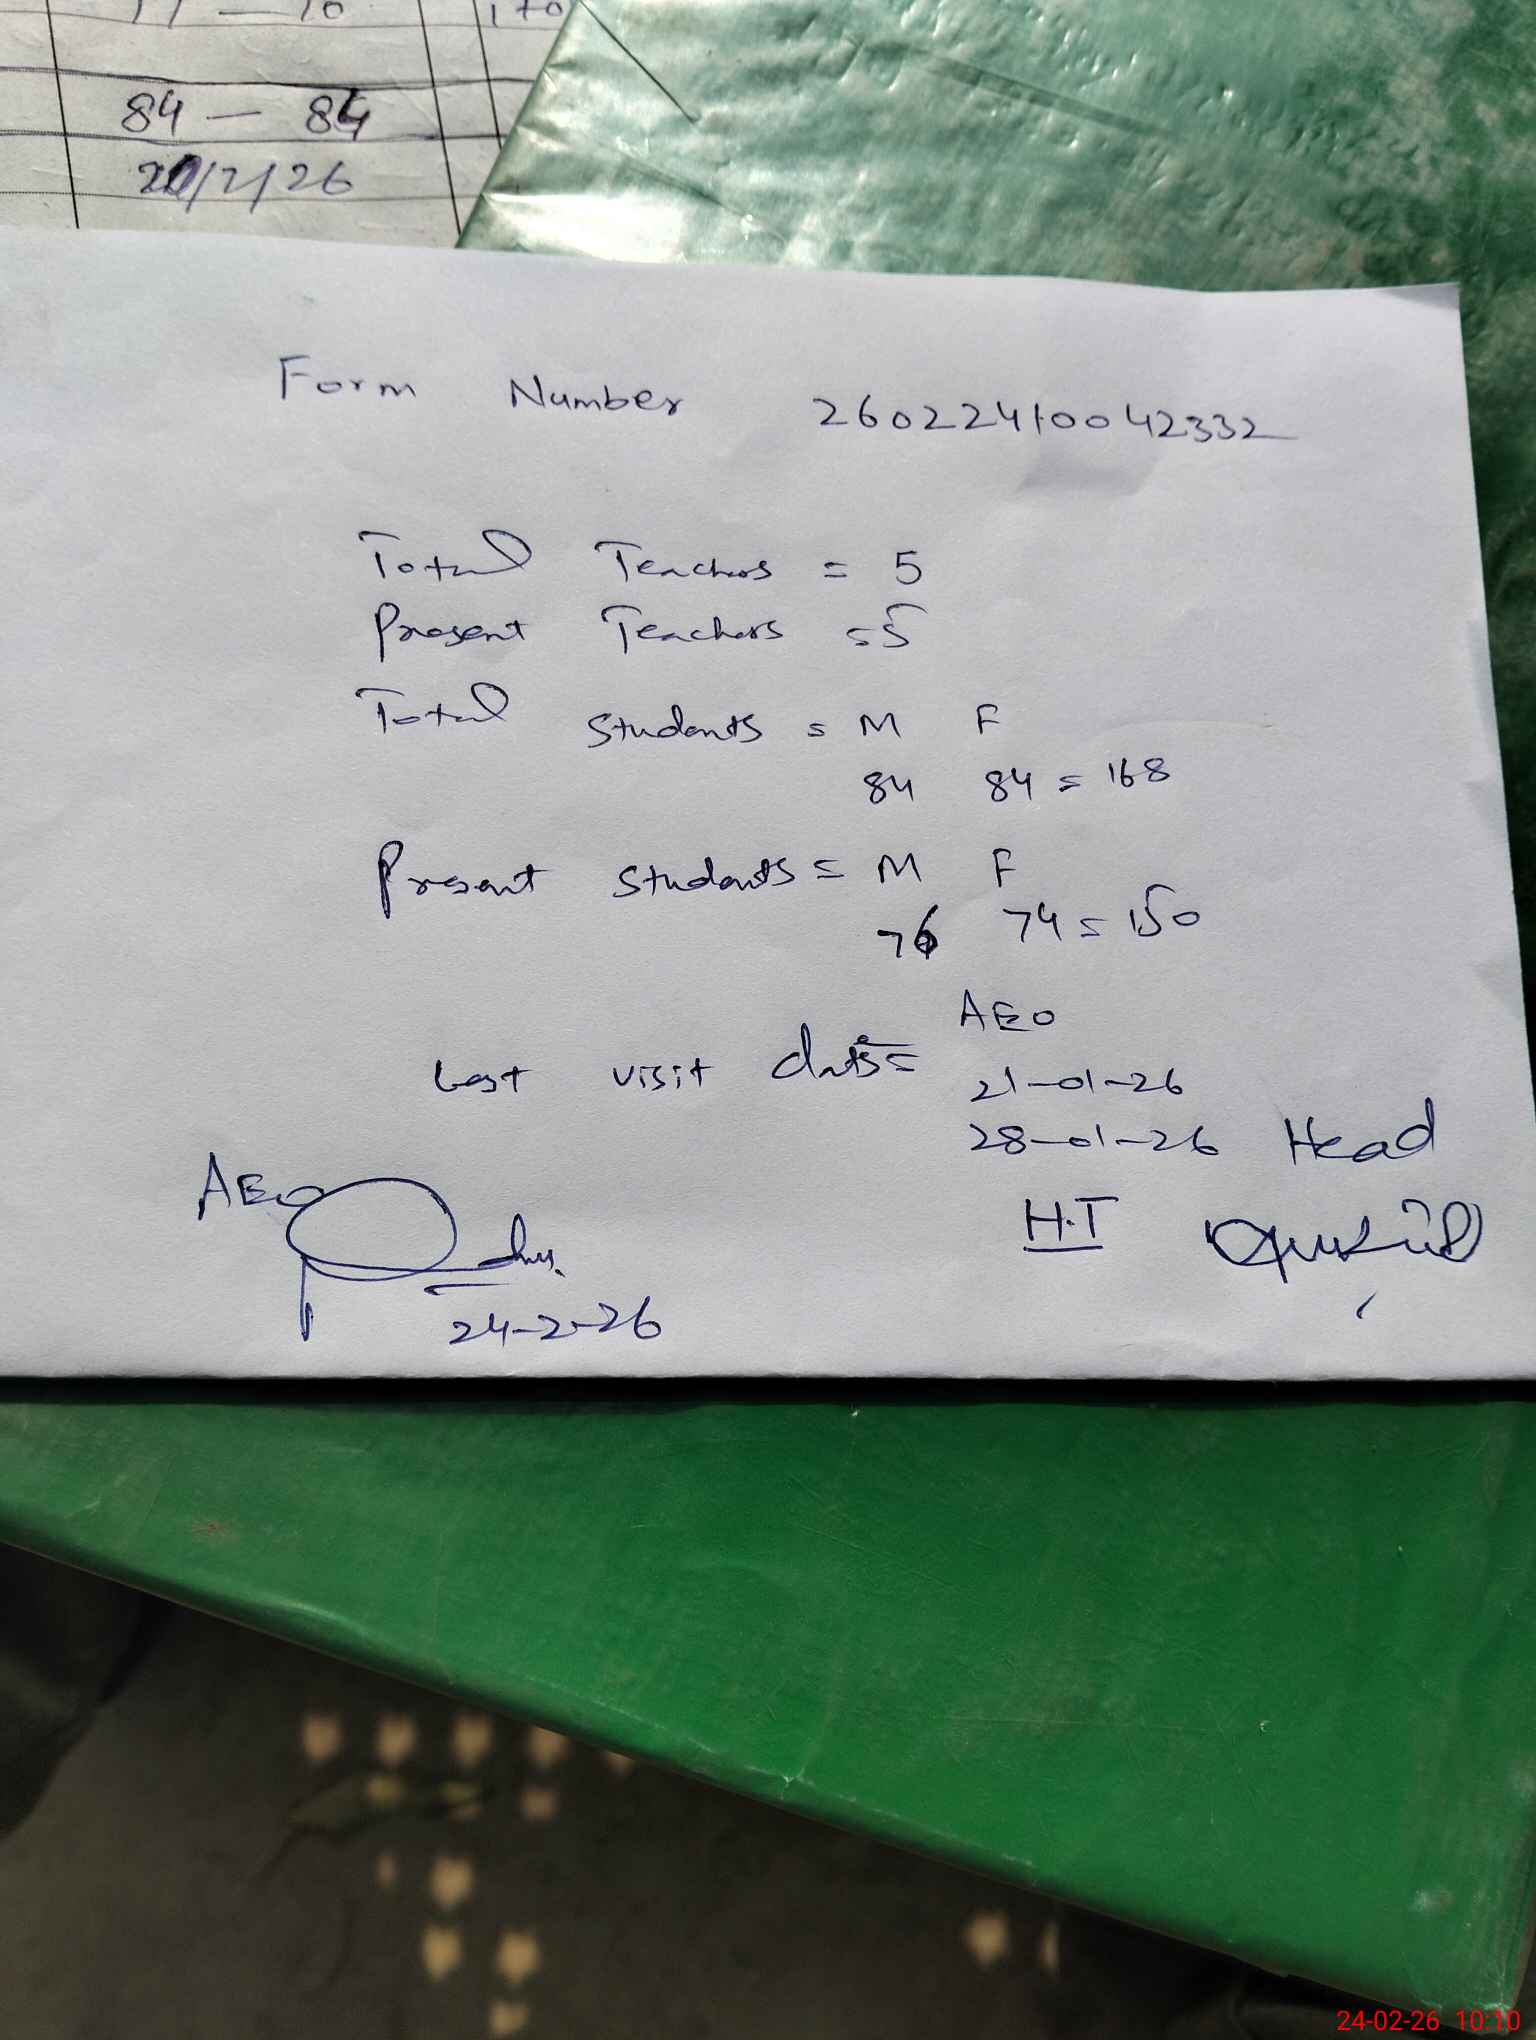 84 — 84
/2/26
Form Number 26022410042332
Total Teachers = 5
Present Teachers = 5
Total Students = M F
84 84 = 168
Present Students = M F
76 74 = 150
AEO
Last visit dates =
21-01-26
28-01-26 Head
AEO
H.T
24-2-26
24-02-26 10:10